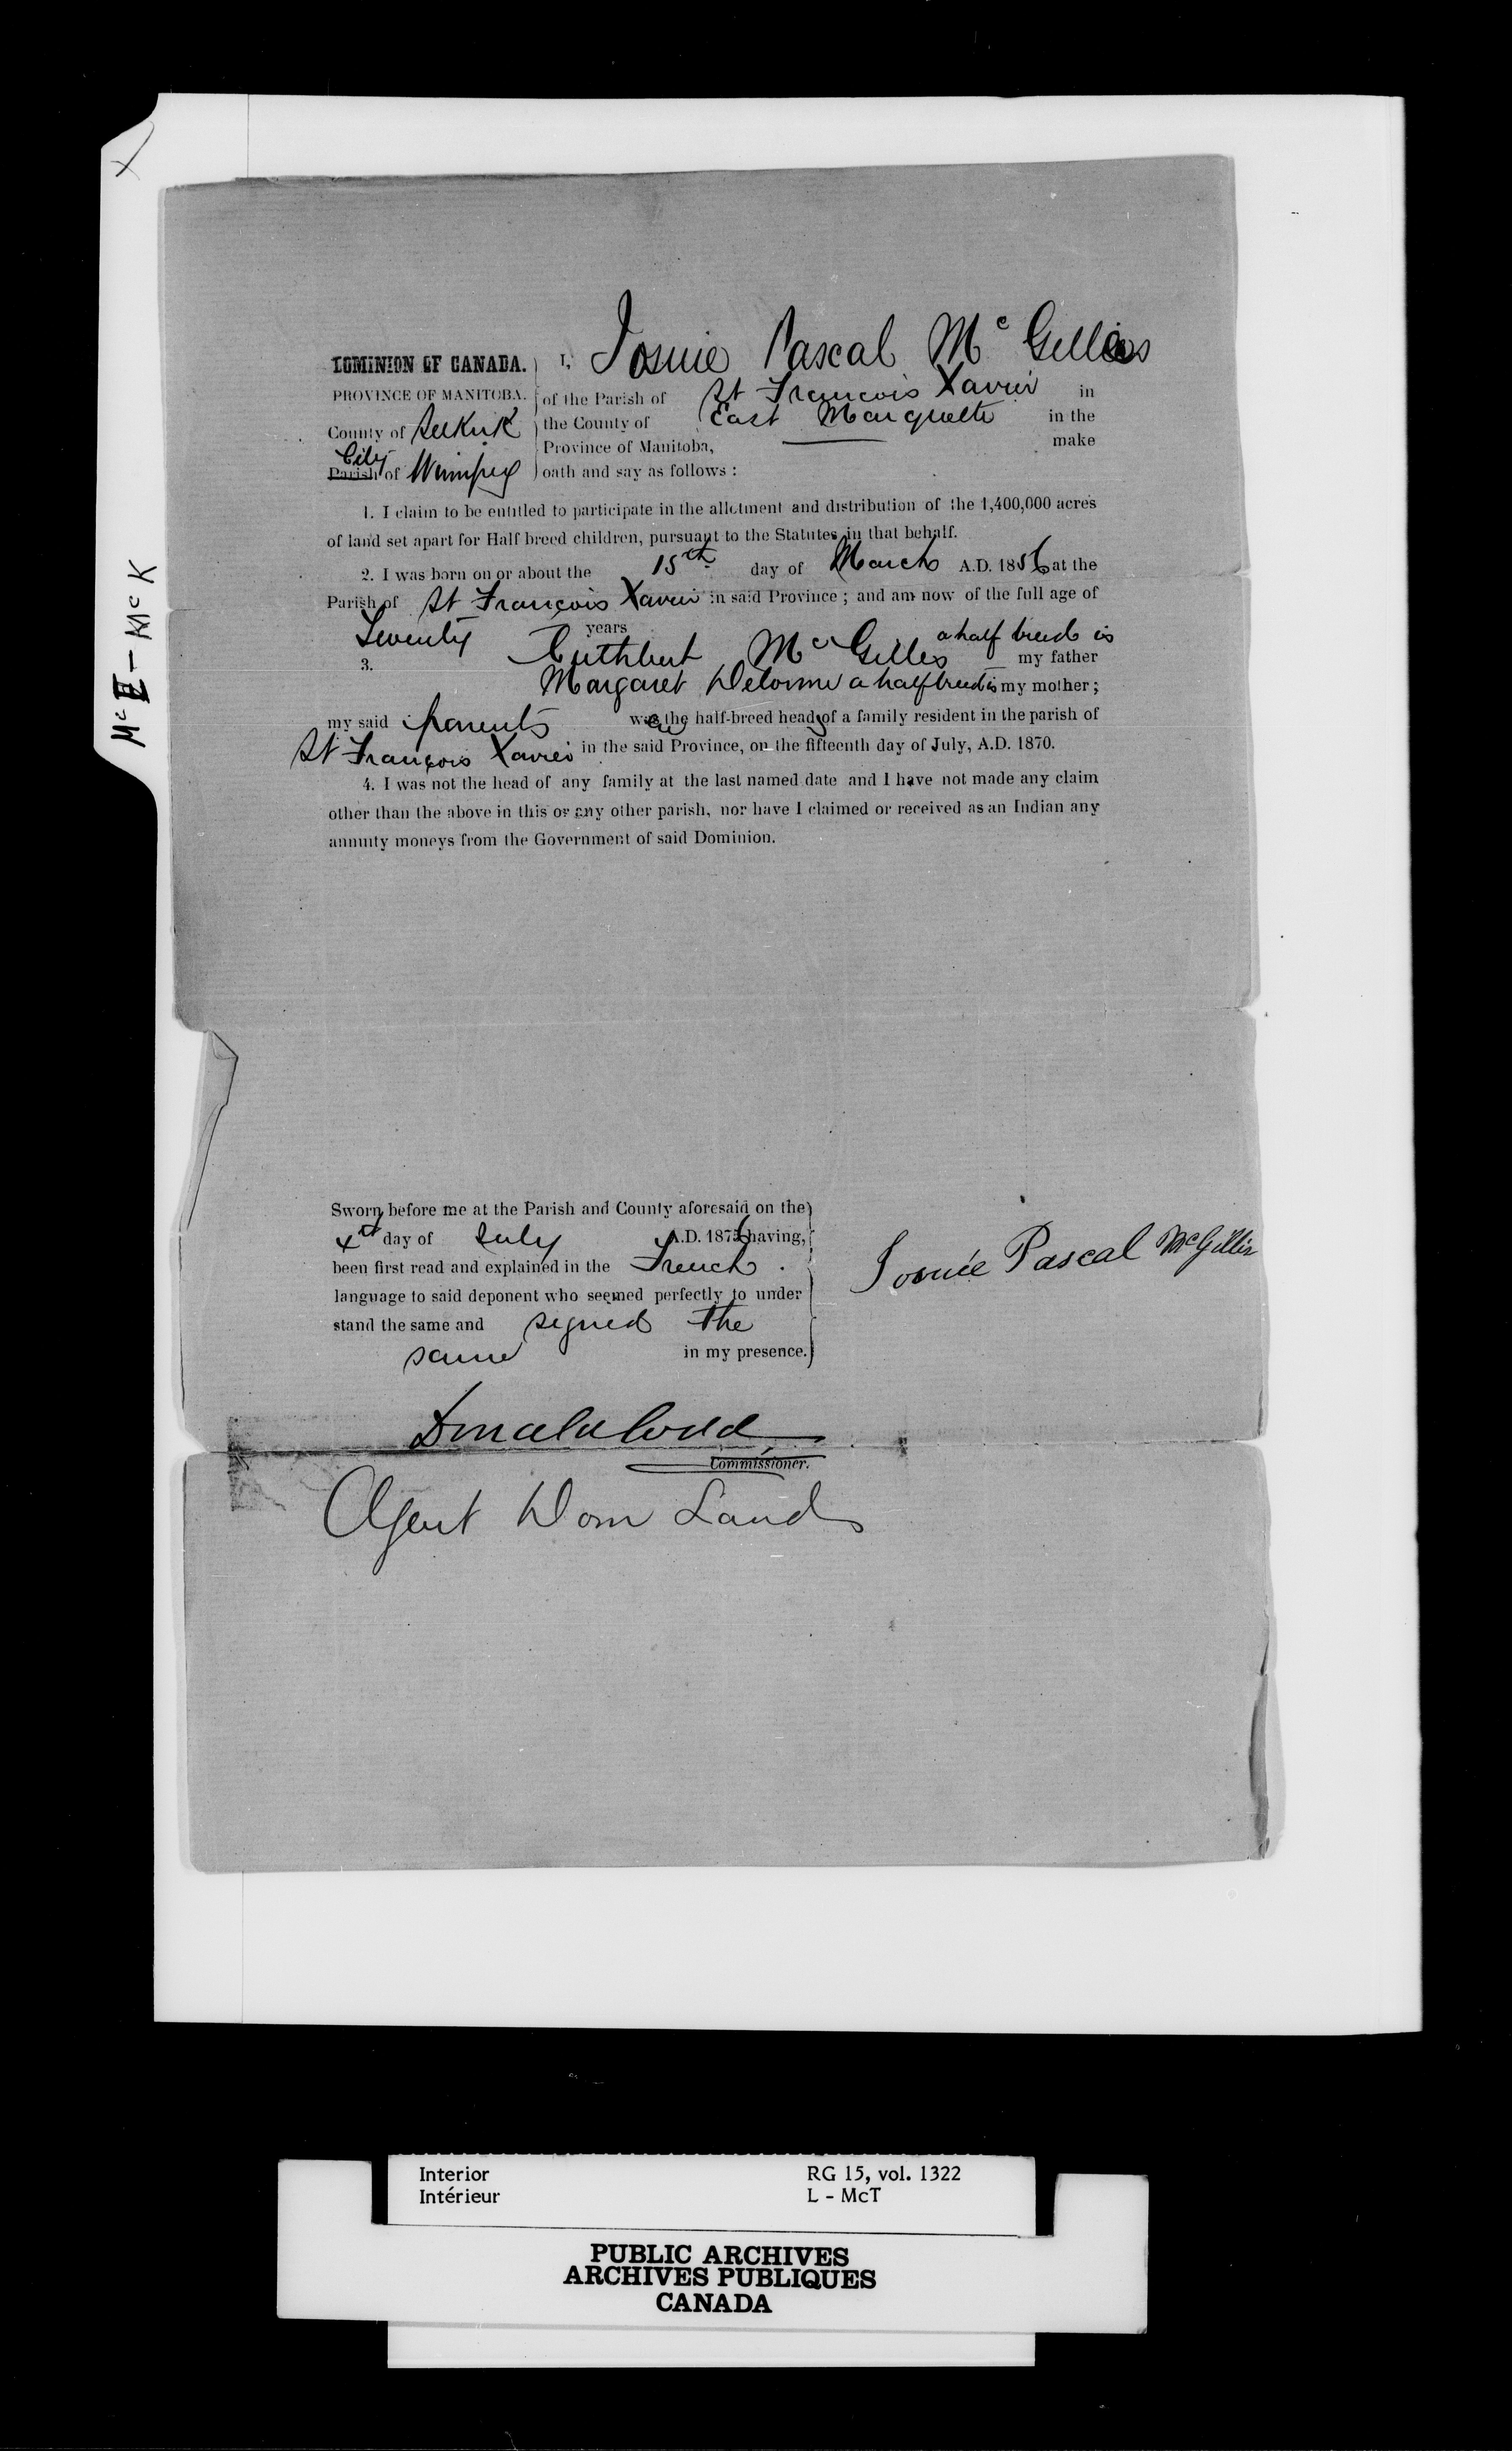 X
Mc E - McK
DOMINION OF CANADA. I, Josuie Pascal Mc Gillies
PROVINCE OF MANITOBA. of the Parish of St François Xavier in
County of Selkirk the County of East Marquette in the
Province of Manitoba, make
City
Parish of Winnipeg oath and say as follows :
1. I claim to be entitled to participate in the allotment and distribution of the 1,400,000 acres
of land set apart for Half breed children, pursuant to the Statutes in that behalf.
2. I was born on or about the 15th day of March A.D. 1856 at the
Parish of St François Xavier in said Province ; and am now of the full age of
Twenty years
3. Cuthbert Mc Gilles a half breed is my father
Margaret Delorme a half breed is my mother ;
my said parents were the half-breed heads of a family resident in the parish of
St François Xavier in the said Province, on the fifteenth day of July, A.D. 1870.
4. I was not the head of any family at the last named date and I have not made any claim
other than the above in this or any other parish, nor have I claimed or received as an Indian any
annuity moneys from the Government of said Dominion.
Sworn before me at the Parish and County aforesaid on the
4th day of July A.D. 1876 having,
been first read and explained in the French
language to said deponent who seemed perfectly to under
stand the same and signed the
same in my presence.
Josuie Pascal McGillis
Donald Codd
Commissioner.
Agent Dom Lands
Interior RG 15, vol. 1322
Intérieur L - McT
PUBLIC ARCHIVES
ARCHIVES PUBLIQUES
CANADA